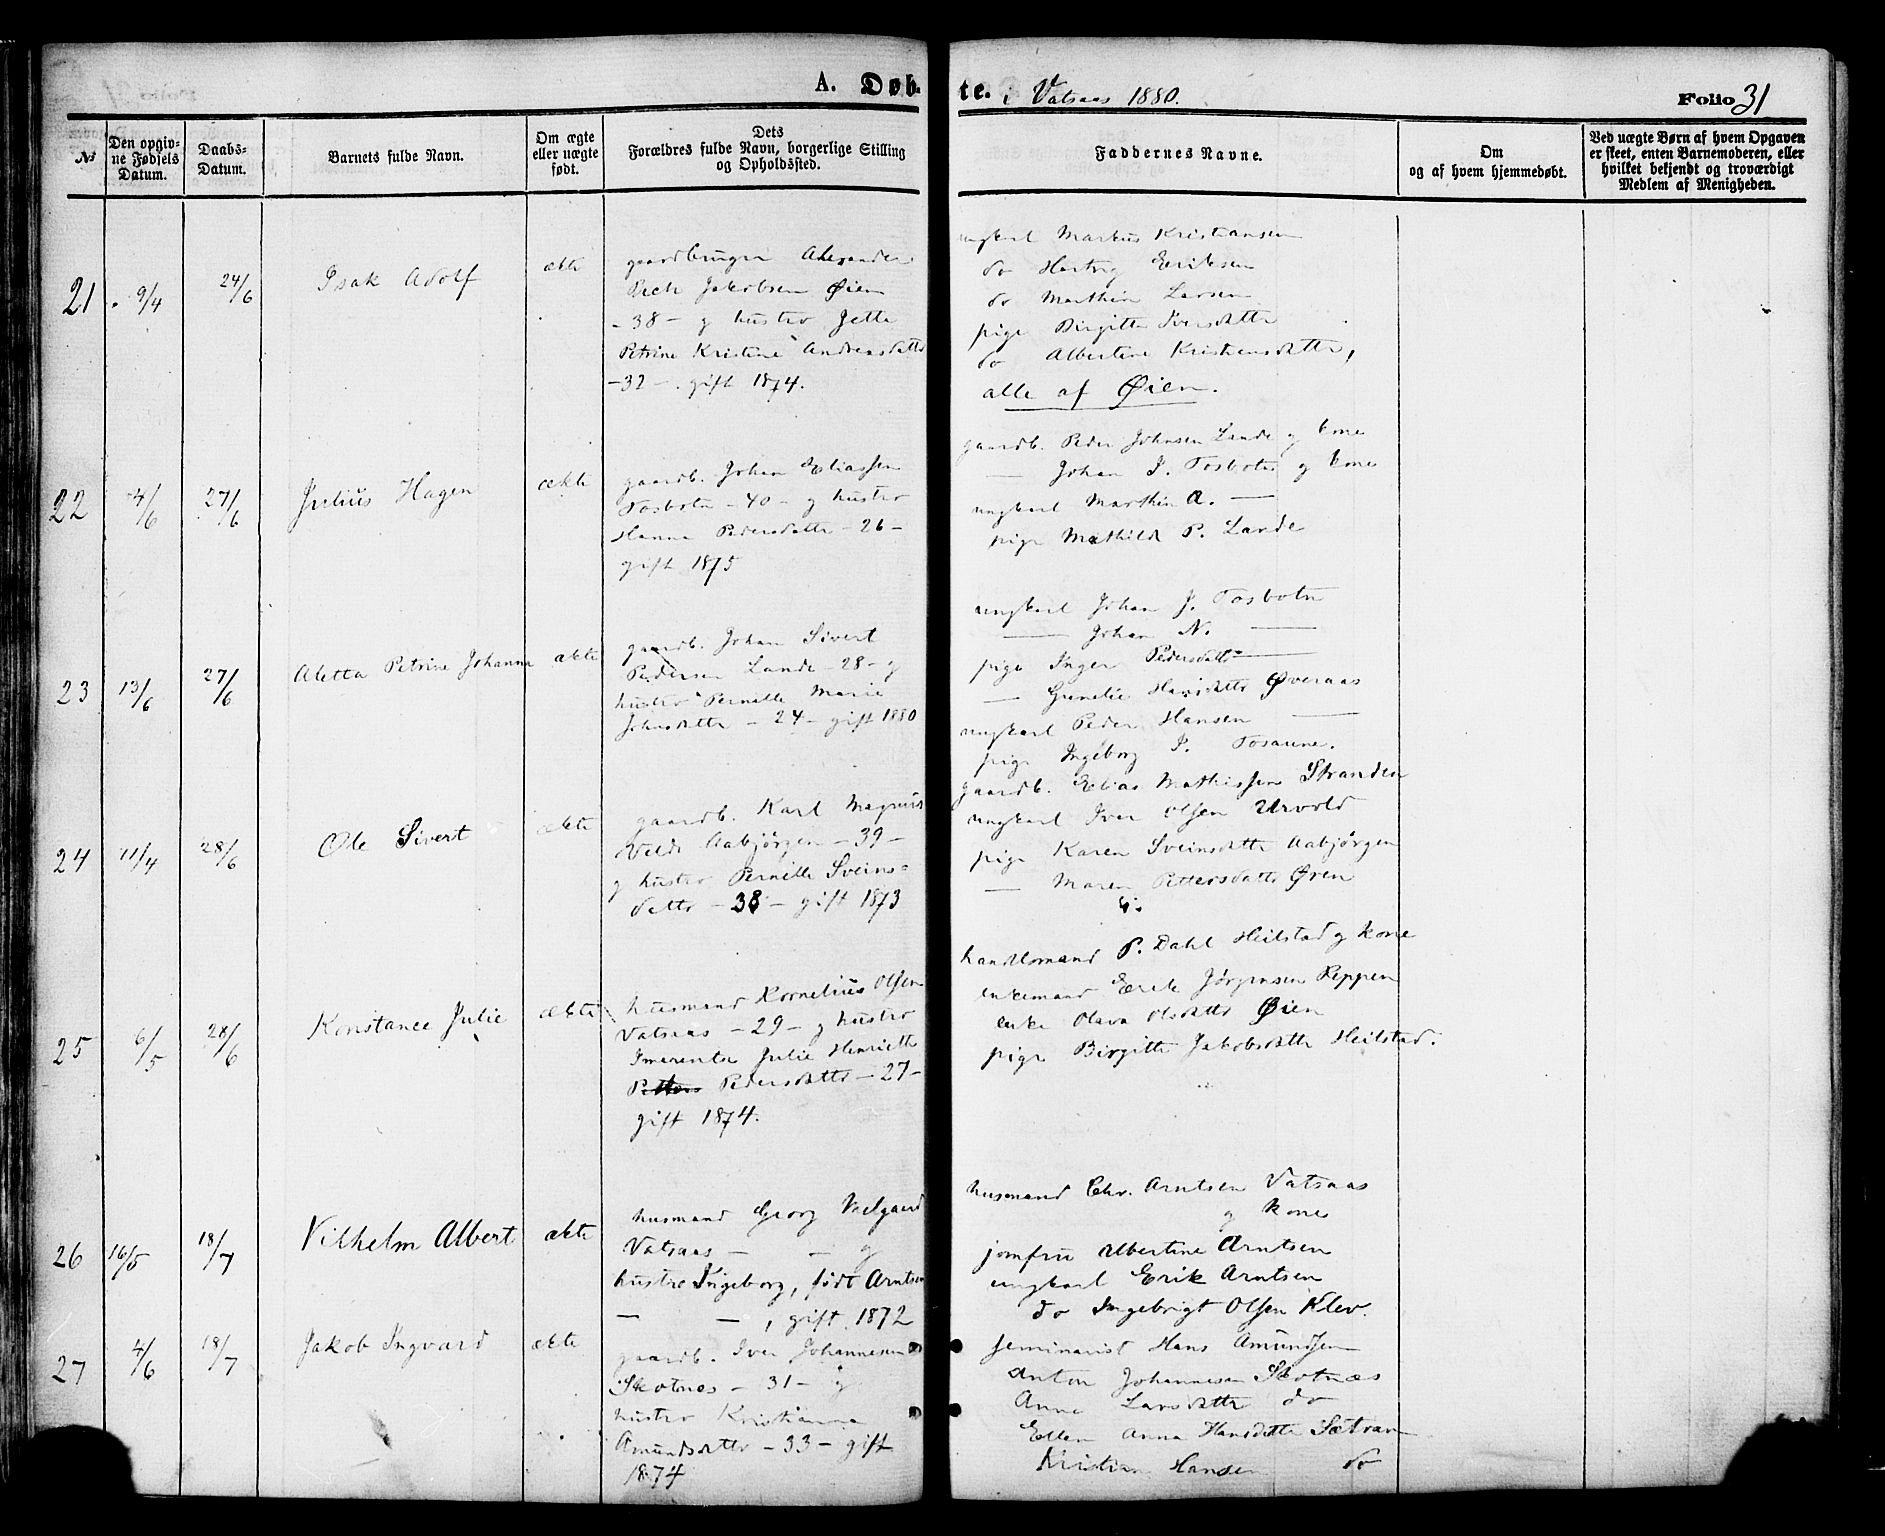 A. Døb-
te. i Vatsaas 1880.
Folio 31
№
Den opgiv-
ne Fødsels
Datum.
Daabs-
Datum.
Barnets fulde Navn.
Om ægte
eller uægte
født.
Dets
Forældres fulde Navn, borgerlige Stilling
og Opholdssted.
Faddernes Navne.
Om
og af hvem hjemmedøbt.
Ved uægte Børn af hvem Opgaven
er skeet, enten Barnemoderen, eller
hvilket bekjendt og troværdigt
Medlem af Menigheden.
21 9/4 24/6 Isak Adolf ækte
gaardbruger Alexander
Jakobsen Øien
-38- g hustro Jette
Petrine Kristine Andreasdatter
-32-. gift 1874.
ungkarl Markus Kristiansen
do Hartvig Eriksen
do Marthin Larsen
pige Birgitte Iversdatter
do Albertine Kristensdatter,
alle af Øien.
22 4/6 27/6 Julius Hagen ækte
gaardb. Johan Eliassen
Tosbotn -40- g hustro
Hanna Pedersdatter -26-
gift 1875
gaardb. Peder Johnsen Lande g kone
— Johan I. Tosbotn g kone
ungkarl Marthin A. —
pige Mathilde P. Lande
23 13/6 27/6 Aletta Petrine Johanna ækte
gaardb. Johan Sivert
Pedersen Lande -28- g
hustro Pernille Marie
Johnsdatter -24- gift 1880
ungkarl Johan J. Tosbotn
— Johan N. —
pige Inger Pedersdatter —
— Gunelie Hansdatter Øveraas
ungkarl Peder Hansen —
pige Ingeborg I. Tosaune.
24 11/4 28/6 Ole Sivert ækte
gaardb. Karl Magnus
Velde Aabjørgen -39-
g hustro Pernille Sveins-
datter -38- gift 1873
gaardb. Elias Mathissen Stranden
ungkarl Iver Olsen Urvold
pige Karen Sveinsdatter Aabjørgen
— Maren Pettersdatter Øren
25 6/5 28/6 Konstance Julie ækte
husmand Kornelius Olsen
Vatsaas -29- g hustro
Imarentse Julie Henriette
Petters Pedersdatter -27-
gift 1874.
handlsmand P. Dahl Heilstad g kone
enkemand Erik Jørgensen Reppen
enke Olava Olsdatter Øien
pige Birgitte Jakobsdatter Heilstad.
26 16/5 18/7 Vilhelm Albert ækte
husmand Georg Velgaard
Vatsaas — — g
hustro Ingeborg, født Arntsen
— —, gift 1872
husmand Chr. Arntsen Vatsaas
g kone
jomfru Albertine Arntsen
ungkarl Erik Arntsen
do Ingebrigt Olsen Klev.
27 4/6 18/7 Jakob Ingvard ækte
gaardb. Iver Johannesen
Skotnes -31- g
hustro Kristianna
Amundsdatter -33- gift
1874
seminarist Hans Amundsen
Anton Johannesen Skotnes
Anne Larsdatter do
Ellen Anna Hansdatter Sætran
Kristian Hansen do